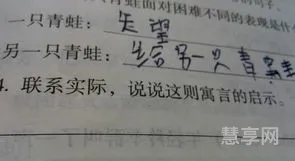 只青蛙面对困难不同的表现是什
一只青蛙：失望
另一只青蛙：给另一只青蛙
4. 联系实际，说说这则寓言的启示。
慧享网